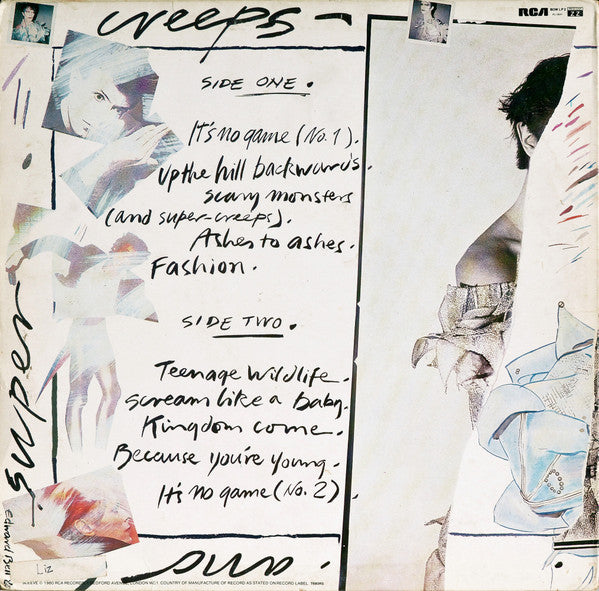 creeps-
RCA BOW LP 2
SIDE ONE.
It's no game (No. 1).
Up the hill backwards.
Scary monsters
(and super-creeps).
Ashes to ashes.
Fashion.
SIDE TWO.
Teenage Wildlife.
Scream like a baby.
Kingdom come.
Because you're young.
It's no game (No. 2).
super
and
Edward Bell
Liz
SLEEVE © 1980 RCA RECORDS, BEDFORD AVENUE, LONDON WC1. COUNTRY OF MANUFACTURE OF RECORD AS STATED ON RECORD LABEL.